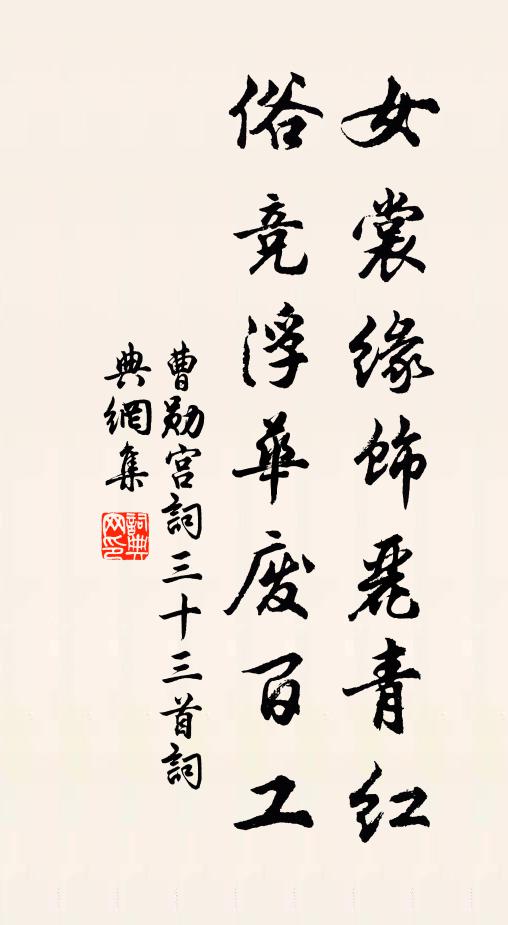 女裳缘饰丽青红
俗竞浮华废百工
曹勋宫词三十三首词
典網集
詞典網印